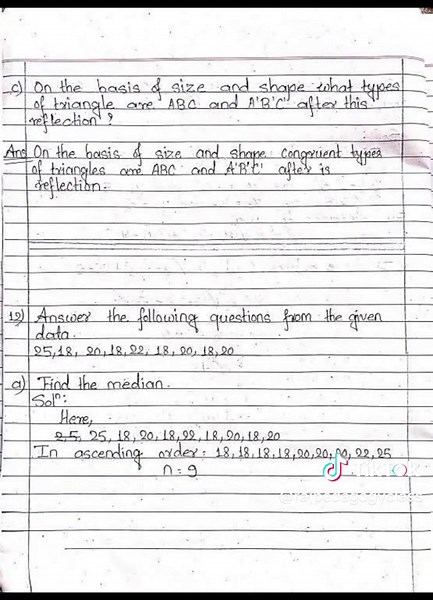 c) On the basis of size and shape what types
of triangle are ABC and A'B'C' after this
reflection?
Ans On the basis of size and shape congruent types
of triangles are ABC and A'B'C' after is
reflection.
12) Answer the following questions from the given
data.
25,18, 20,18,22, 18,20,18,20
a) Find the median.
Solⁿ:
Here,
25, 25, 18, 20, 18, 22, 18, 20, 18, 20
In ascending order = 18,18,18,18,20,20,20,22,25
n = 9
TikTok